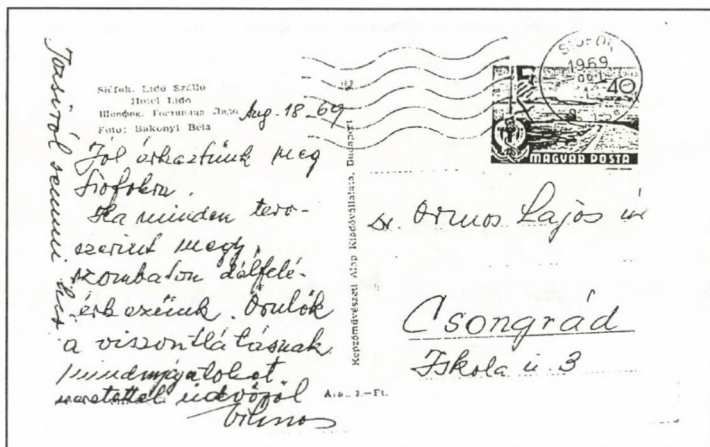 Siófok. Lidó Szálló
Hotel Lido
Шиофок. Гостиница Лидо
Foto: Bakonyi Béla
Aug. 18_69
Jól érkeztünk meg
Siófokra.
Ha minden terv-
szerint megy,
szombaton délfelé
érkezünk. Örülök
a viszontlátásnak
mindnyájatokat
szeretettel üdvözöl
Vilmos
semmi hír
Képzőművészeti Alap Kiadóvállalata, Budapest
Ára: 2.—Ft.
SIÓFOK
1969
40
MAGYAR POSTA
Dr. Ormos Lajos úr
Csongrád
Iskola u 3